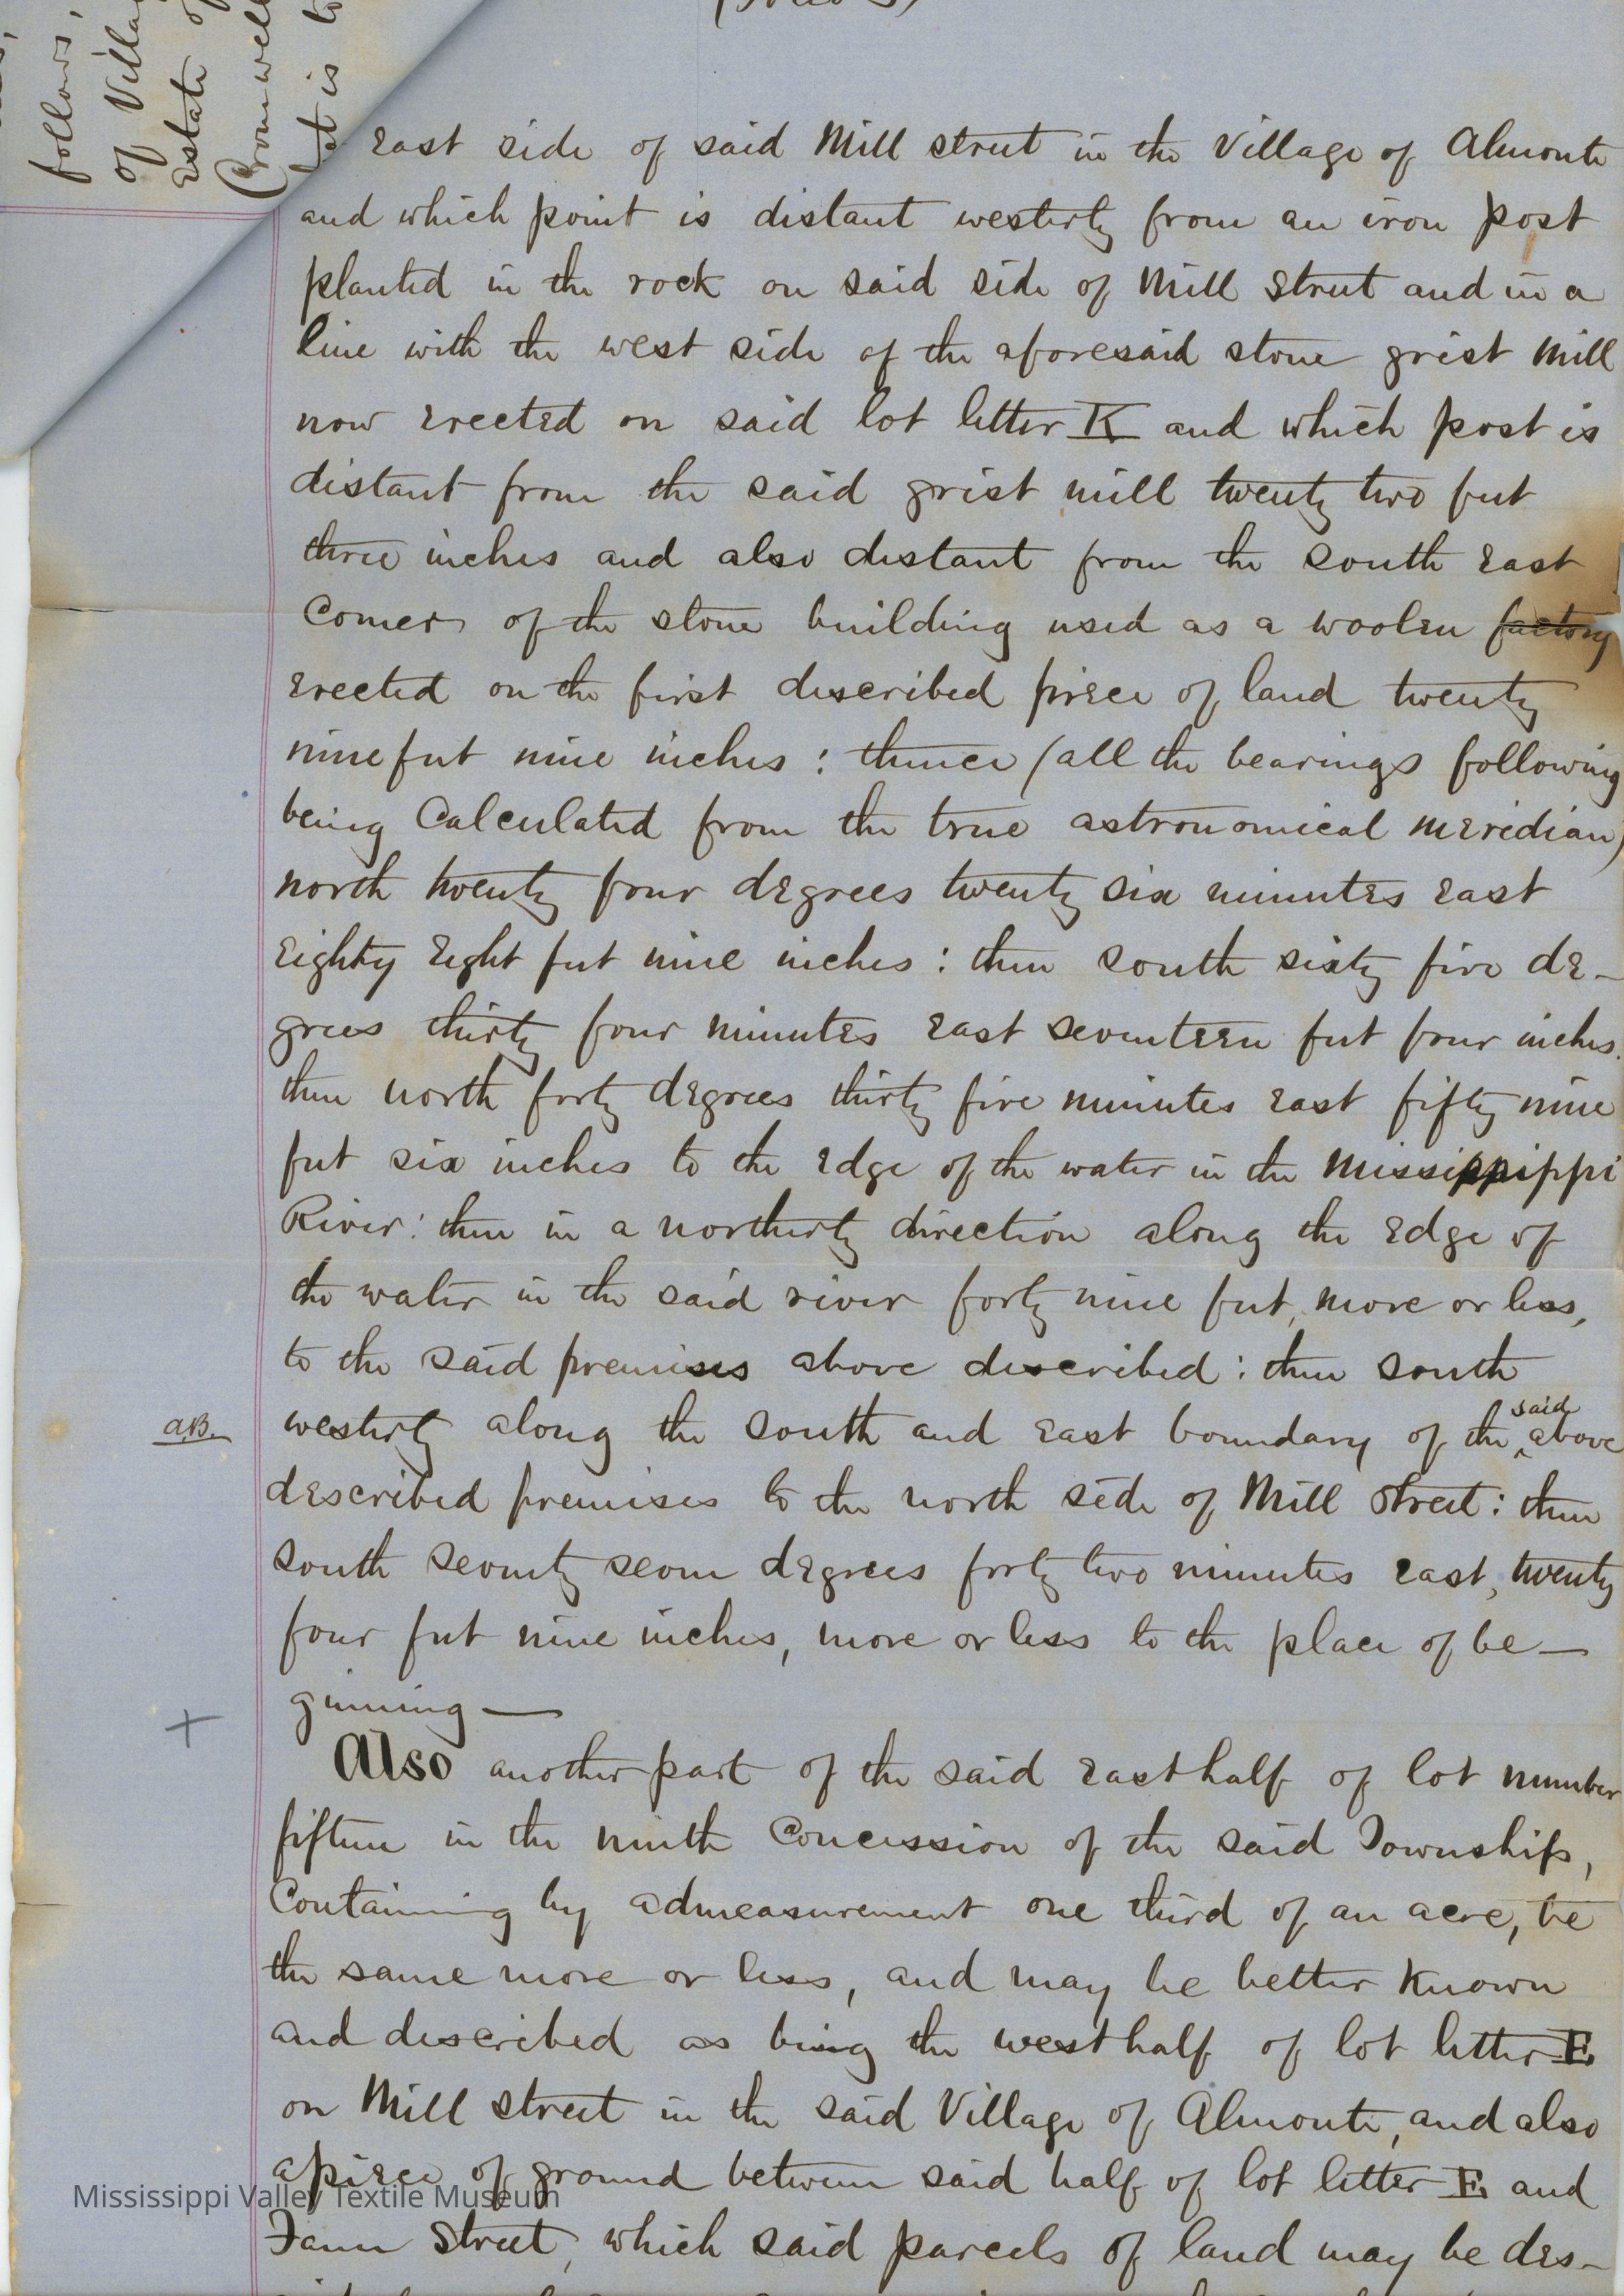 follows,
of Villa
Estate of
Cromwell
Lot is to
East side of said Mill street in the Village of Almonte
and which point is distant westerly from an iron post
planted in the rock on said side of Mill street and in a
line with the west side of the aforesaid stone grist Mill
now erected on said lot letter K and which post is
distant from the said grist mill twenty two feet
three inches and also distant from the south East
Corner of the stone building used as a woolen factory
erected on the first described piece of land twenty
nine feet nine inches : thence (all the bearings following
being Calculated from the true astronomical meridian)
north twenty four degrees twenty six minutes East
Eighty Eight feet nine inches : then south sixty five de-
grees thirty four minutes East seventeen feet four inches.
then north forty degrees thirty five minutes East fifty nine
feet six inches to the edge of the water in the Mississippi
River : then in a northerly direction along the edge of
the water in the said river forty nine feet, more or less,
to the said premises above described : then south
a.B. westerly along the south and East boundary of the said above
described premises to the north side of Mill street : then
south seventy seven degrees forty two minutes East, twenty
four feet nine inches, more or less to the place of be-
ginning —
+
Also another part of the said East half of lot number
fifteen in the ninth Concession of the said Township,
Containing by admeasurement one third of an acre, be
the same more or less, and may be better known
and described as being the west half of lot letter E
on Mill street in the said Village of Almonte, and also
a piece of ground between said half of lot letter E and
Farm Street, which said parcels of land may be des-
Mississippi Valley Textile Museum